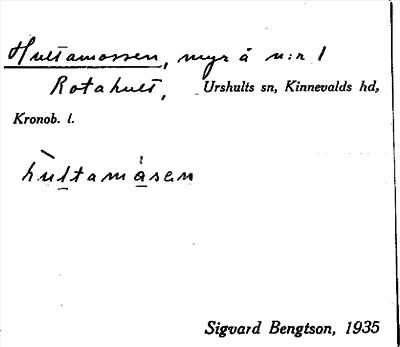 Hultamossen, myr å n:r 1
Rotahult, Urshults sn, Kinnevalds hd,
Kronob. l.
hùltamåsen
Sigvard Bengtson, 1935